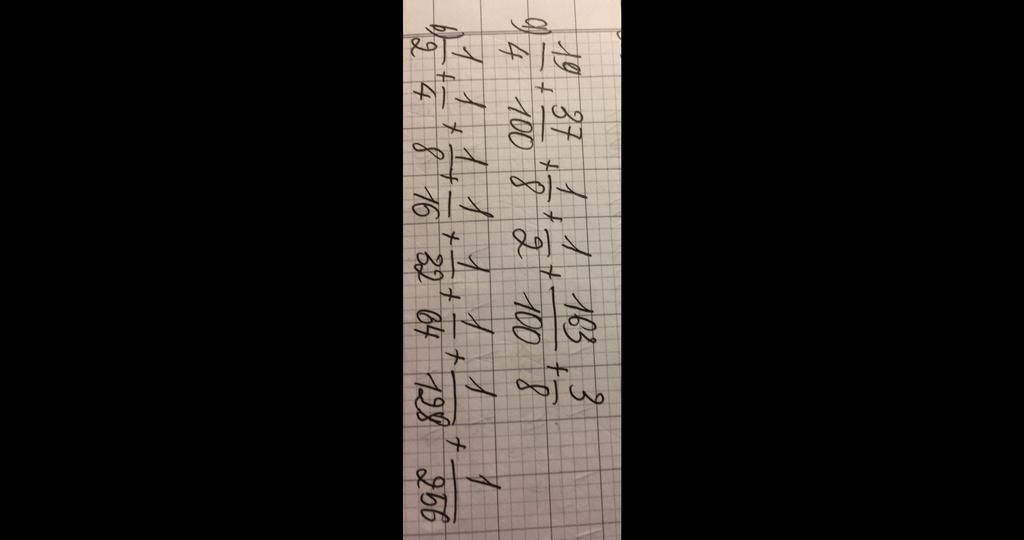 a) 19/4 + 37/100 + 1/8 + 1/2 + 163/100 + 3/8
b) 1/2 + 1/4 + 1/8 + 1/16 + 1/32 + 1/64 + 1/128 + 1/256